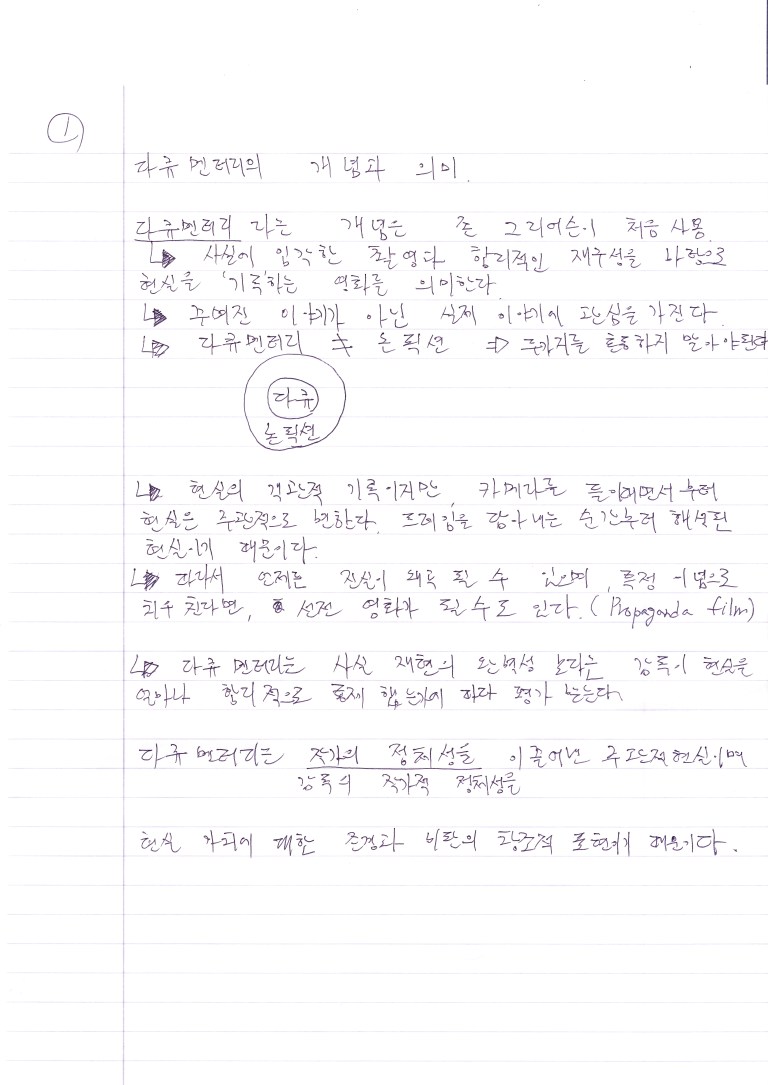 ①
다큐멘터리의 개념과 의미.
다큐멘터리 라는 개념은 존 그리어슨이 처음 사용.
↳ 사실에 입각한 촬영과 합리적인 재구성을 바탕으로
현실을 '기록'하는 영화를 의미한다.
↳ 꾸며진 이야기가 아닌 실제 이야기에 관심을 가진다.
↳ 다큐멘터리 ≠ 논픽션 ⇒ 두가지를 혼동하지 말아야된다
다큐
논픽션
↳ 현실의 객관적 기록이지만, 카메라를 들이대면서 부터
현실은 주관적으로 변한다. 프레임을 담아내는 순간부터 해석된
현실이기 때문이다.
↳ 따라서 언제든 진실이 왜곡 될 수 있으며, 특정 이념으로
치우친다면, 선전 영화가 될 수도 있다. (Propaganda film)
↳ 다큐멘터리는 사실 재현의 완벽성 보다는 감독이 현실을
얼마나 합리적으로 통제 했는가에 따라 평가 받는다.
다큐멘터리는 작가의 정체성을 이끌어낸 주관적현실이며
감독의 작가적 정체성을
현실 가치에 대한 존경과 비판의 창조적 표현이기 때문이다.